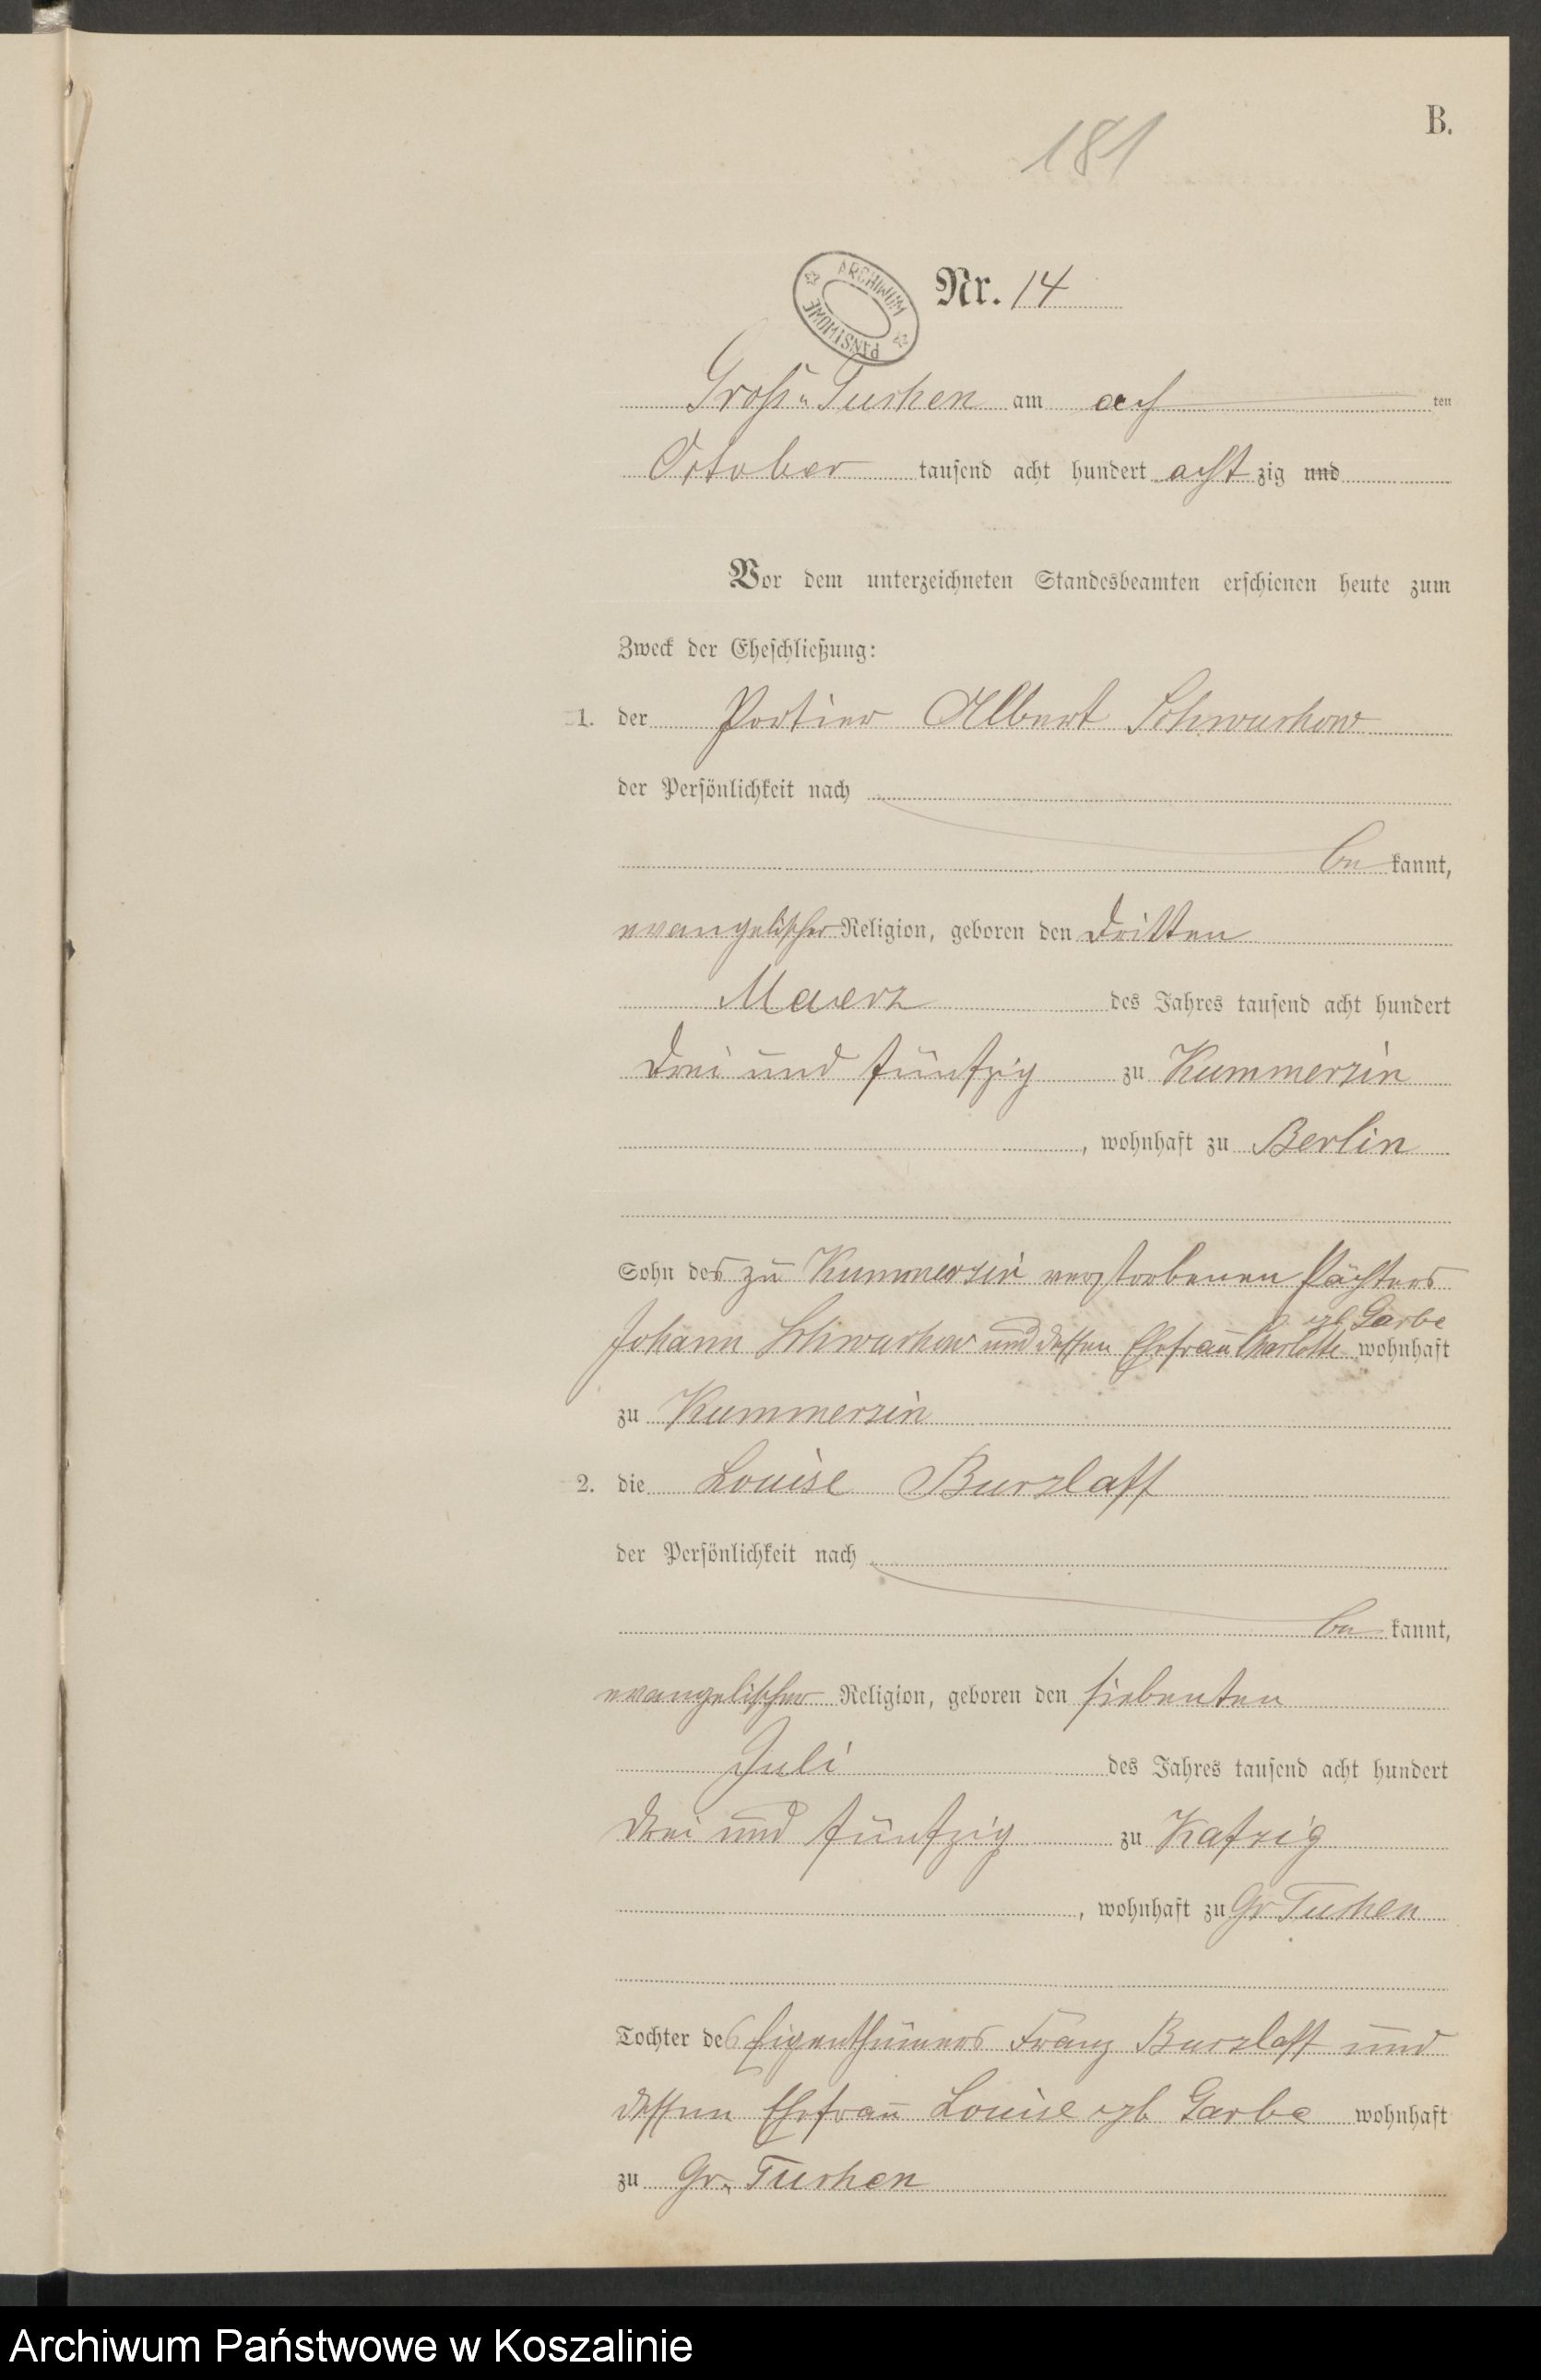 B.
181
ARCHIWUM PAŃSTWOWE
Nr. 14
Groß-Tuchen am ach ten
October tausend acht hundert acht zig und
Vor dem unterzeichneten Standesbeamten erschienen heute zum
Zweck der Eheschließung:
1. der Portier Albert Schwuchow
der Persönlichkeit nach
be kannt,
evangelischer Religion, geboren den dritten
Maerz des Jahres tausend acht hundert
drei und fünfzig zu Kummerzin
, wohnhaft zu Berlin
Sohn des zu Kummerzin verstorbenen Pächters
Johann Schwuchow und dessen Ehefrau Charlotte geb Garbe wohnhaft
zu Kummerzin
2. die Louise Burzlaff
der Persönlichkeit nach
be kannt,
evangelischer Religion, geboren den siebenten
Juli des Jahres tausend acht hundert
drei und fünfzig zu Katzig
, wohnhaft zu Gr Tuchen
Tochter des Eigenthümers Franz Burzlaff und
dessen Ehefrau Louise geb Garbe wohnhaft
zu Gr. Tuchen
Archiwum Państwowe w Koszalinie